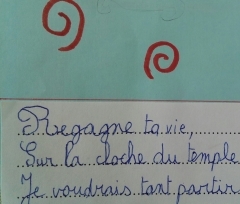 Regagne ta vie,
Sur la cloche du temple
Je voudrais tant partir